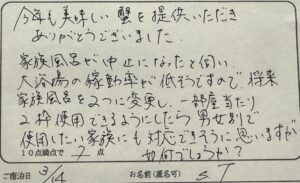 今年も美味しい蟹を提供いただき
ありがとうございました。
家族風呂が中止になったと伺い、
大浴場の稼動率が低そうですので、将来
家族風呂を2つに変更し、一部屋当たり
2枠使用できるようにしたら男女別で
使用したい家族にも対応できそうに思いますが
如何でしょうか?
10点満点で 7 点
ご宿泊日 3/14 お名前(匿名可) S.T